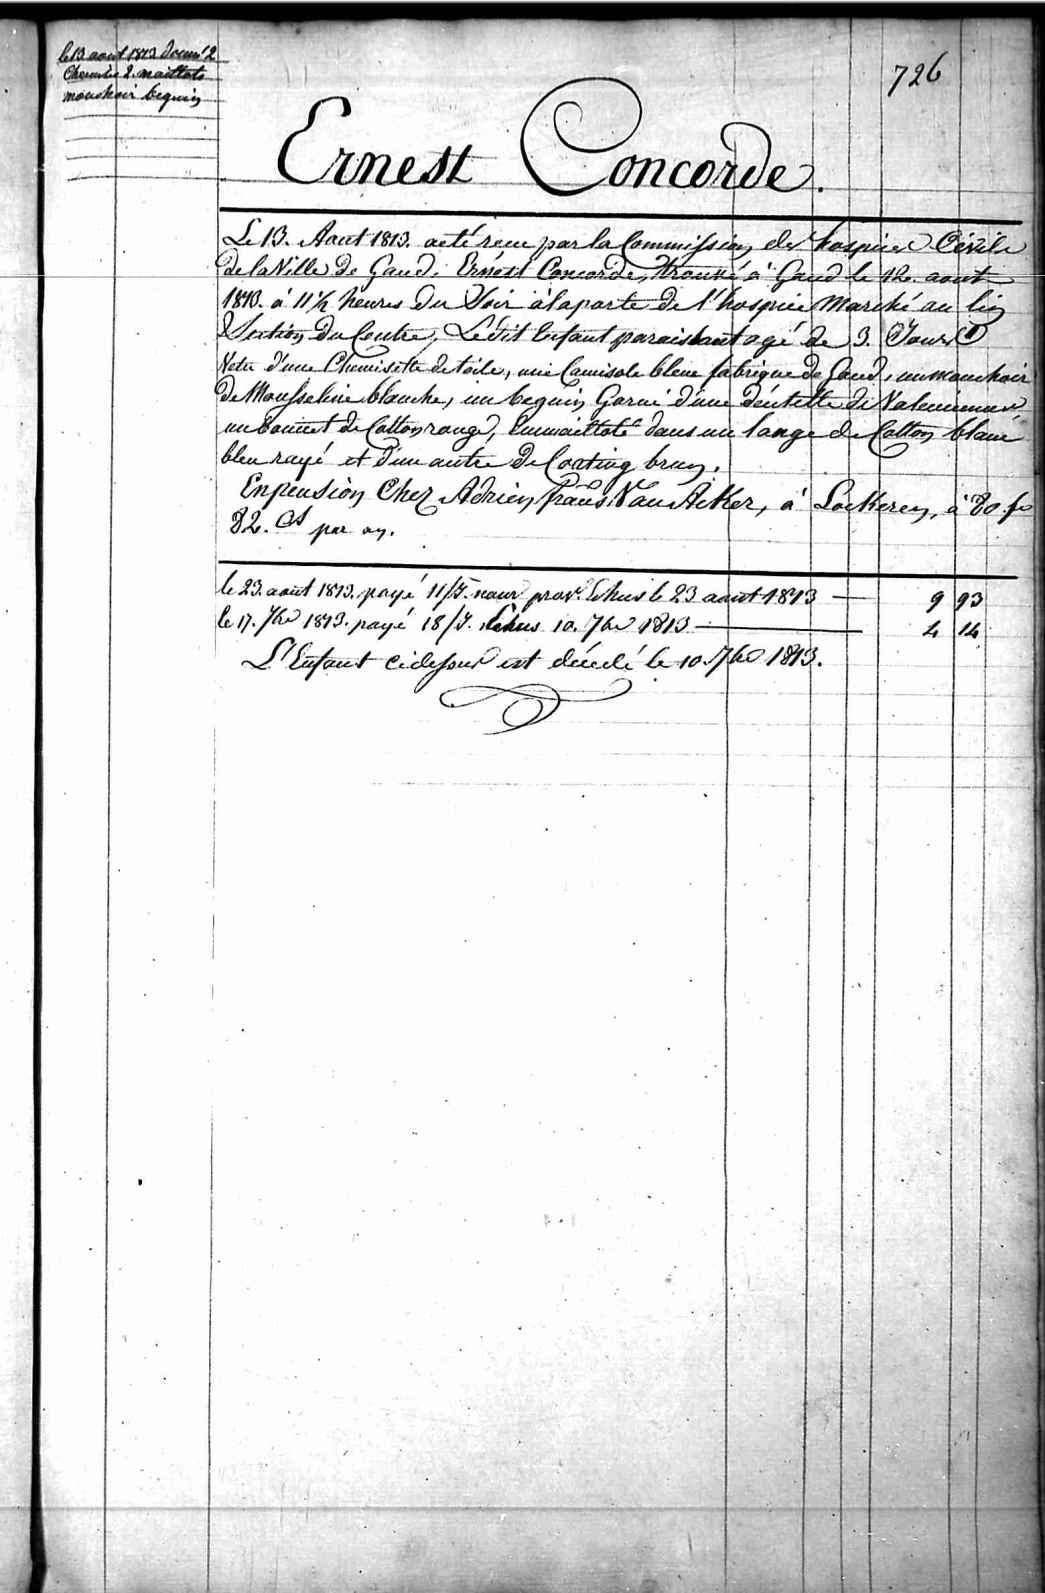 le 13 aout 1813 donné 2
Chemises 2. maillots
mouchoir beguin
726
Ernest Concorde.
Le 13. Aout 1813. a eté recu par la Commission des hospices Civils
de la Ville de Gand, Ernest Concorde, trouvé à Gand le 12. aout
1813. à 11 1/2 heures du Soir à la porte de l'hospice Marché au lin
Section du Centre, Ledit Enfant paraissant agé de 3. Jours
Vetu d'une Chemisette de toile, une Camisole bleue fabrique de Gand, un mouchoir
de Mousseline blanche, un beguin Garni d'une déntelle de Valencienne
un bonnet de Cotton rouge, Emmailloté dans un lange de Cotton blanc
bleu rayé et d'un autre de Coating brun.
En pension Chez Adrien frans Van Acker, à Lockeren, à 80. fs
82. Cs par an.
le 23. aout 1813. payé 11/J. prov. Echus le 23 aout 1813 9 93
le 17. 7bre 1813. payé 18/J. Echus 10. 7bre 1813 4 14
L'Enfant cidessus est décédé le 10. 7bre 1813.